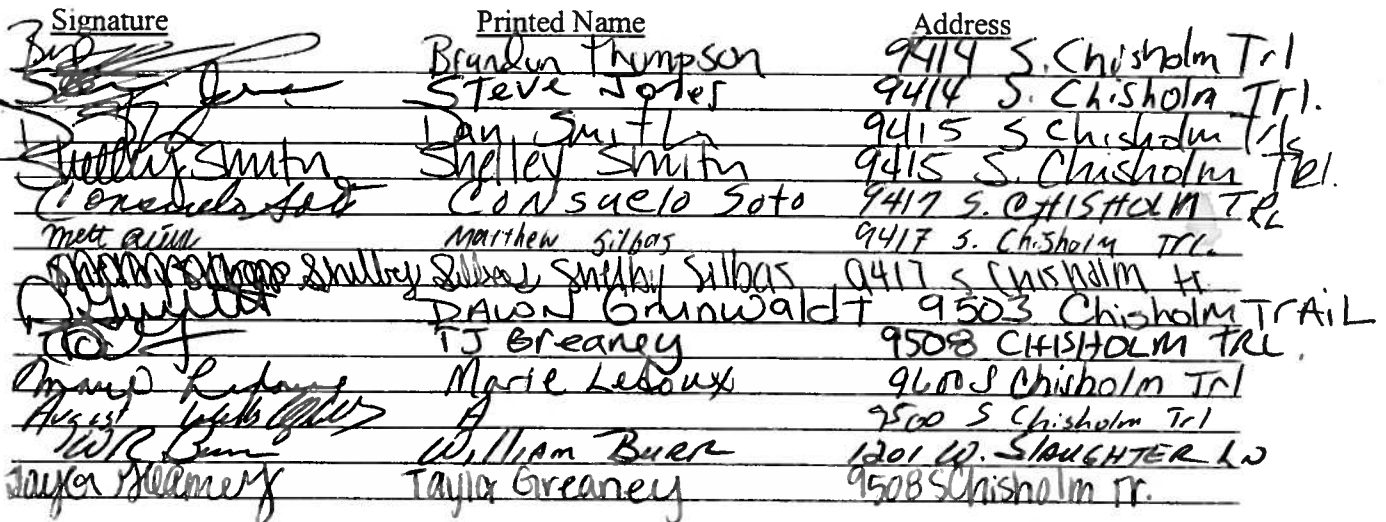 Signature Printed Name Address
Brandon Thompson 9414 S. Chisholm Trl
Steve Jones 9414 S. Chisholm Trl.
Dan Smith 9415 S Chisholm Trls
Shelley Smith Shelley Smith 9415 S. Chisholm TRl.
Consuelo Soto Consuelo Soto 9417 S. CHISHOLM TRL
Matthew Silbas 9417 S. Chisholm TRL.
Shelby Silbas Shelby Silbas 9417 S Chisholm tr.
DAWN Grunwaldt 9503 Chisholm TrAiL
TJ Greaney 9508 CHISHOLM TRL.
Marie Ledoux Marie Ledoux 9600 S Chisholm Trl
August A 9500 S Chisholm Trl
WR Burr William Burr 1201 W. SlAUGHTER LN
Taylor Greaney Taylor Greaney 9508 S Chisholm Tr.